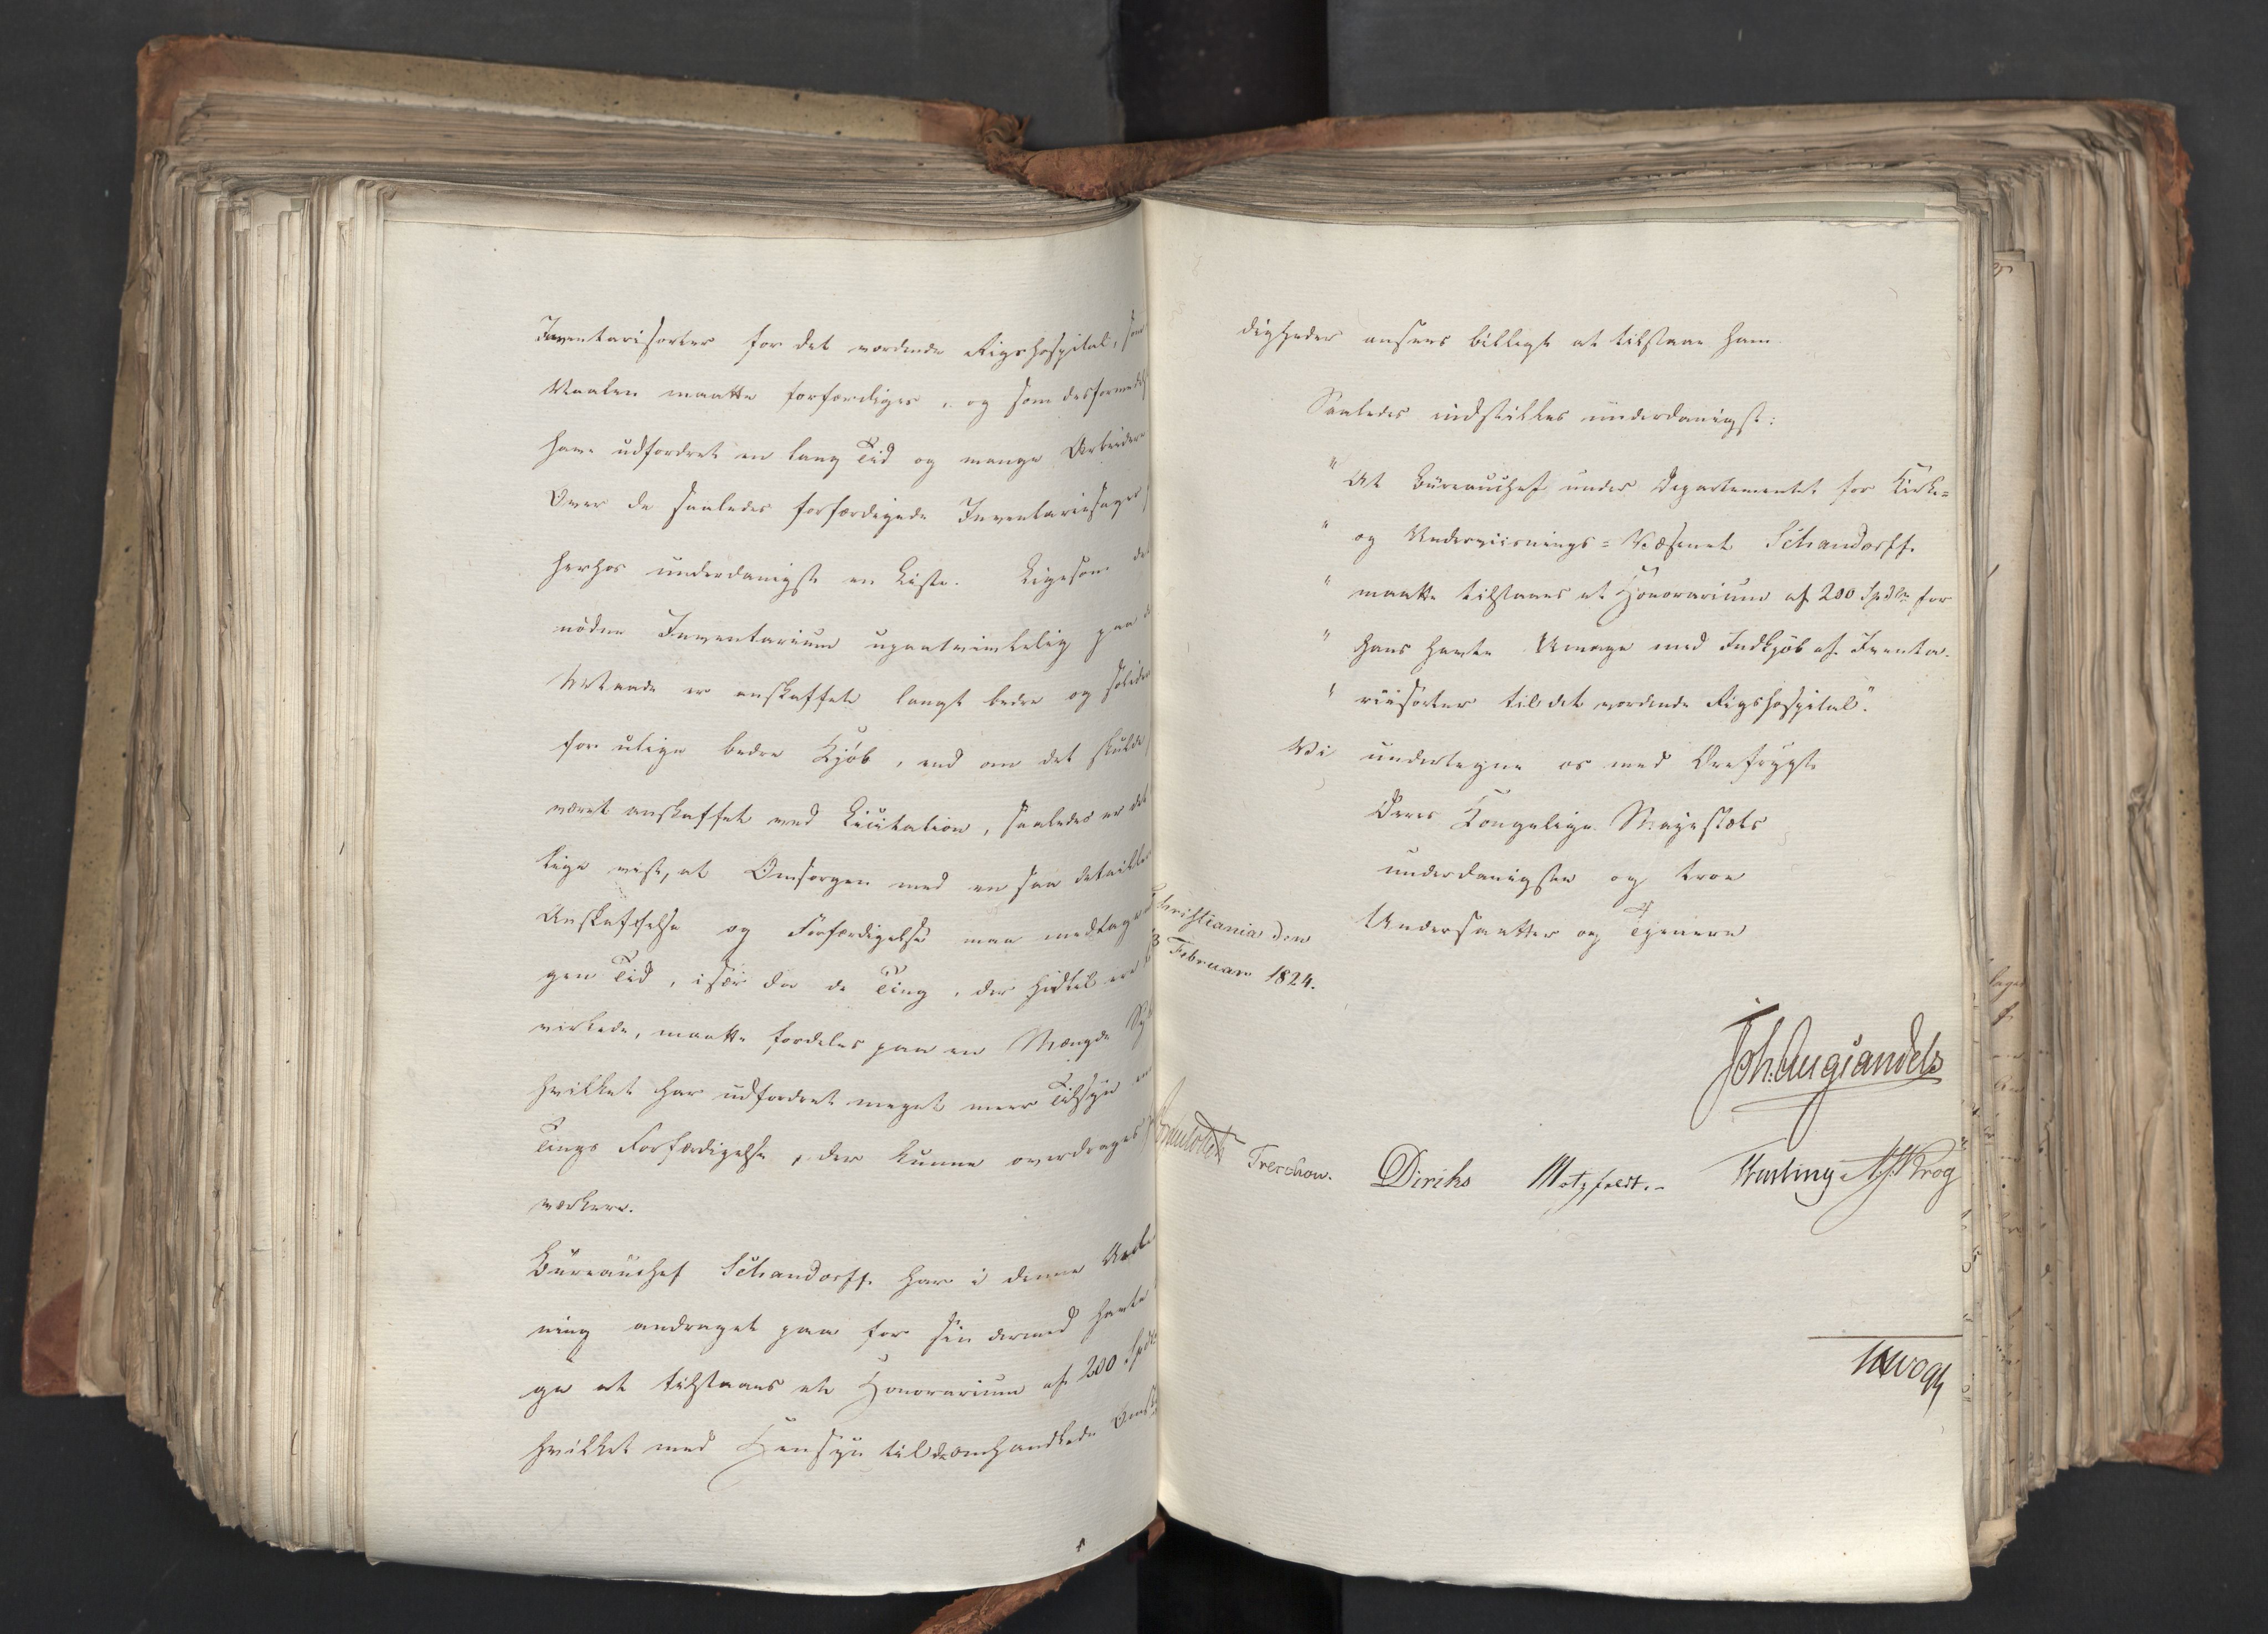 Inventarisorter for det vordende Rigshospital, som
maatte forfærdiges, og som desformedelst
have udfordret en lang Tid og mange Arbeidere
Over de saaledes forfærdigede Inventariesager
herhos underdanigst en Liste. Ligesom det
nødne Inventarium upaatvivlelig paa
Maade er anskaffet langt bedre og solidere
for ulige bedre Kjøb, end om det skulde
været anskaffet ved Licitation, saaledes er det
lige vist, at Omsorgen med en saa detailleret
Anskaffelse og Forfærdigelse maa medtage
gen Tid, især da de Ting, der hidtil ere
virkede, maatte fordeles paa en Mængde
hvilket har udfordret meget meer Tilsyn
Tings Forfærdigelse, der kunne overdrages
værkere.
Büreauchef Schandorff har i denne
ning andraget paa for sin dermed havte
ge at tilstaaes et Honorarium af 200 Spd
hvilket med Hensyn til de omhandlede Omst
digheder ansees billigt at tilstaae ham.
Saaledes indstilles underdanigst:
" At Büreauchef under Departementet for Kirke=
" og Underviisnings=Væsenet Schandorff
" maatte tilstaaes et Honorarium af 200 Spdlr for
" hans havte Umage med Indkjøb af Inventa-
" riisorter til det vordende Rigshospital".
Vi undertegne os med Ærefrygt
Deres Kongelige Majestæts
underdanigste og troe
Undersaatter og Tjenere
Christiania den
Februar 1824.
Joh. Aug. Sandels
Treschow. Diriks Motzfeldt.
Krog
Vogt